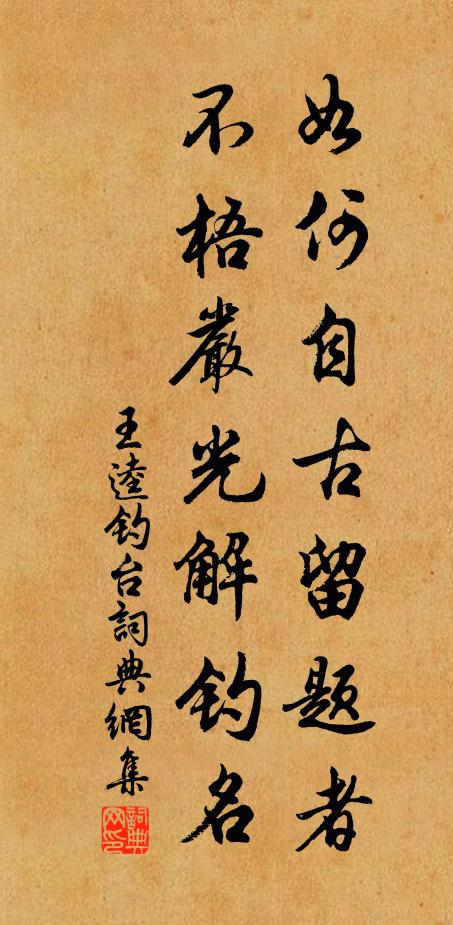 如何自古留题者
不梧嚴光解钓名
王逵钓台詞典網集
詞典网印